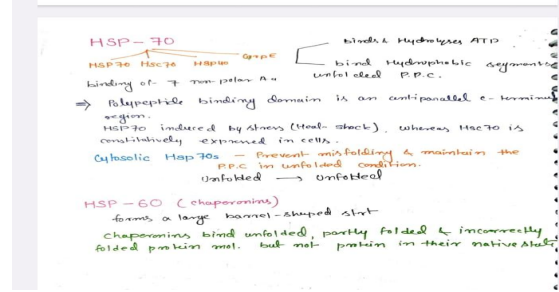 HSP-70
binds & Hydrolyses ATP
HSP70 Hsc70 HSP40 GrpE
bind Hydrophobic segments
unfolded P.P.C.
binding of 7 non-polar A.a
⇒ Polypeptide binding domain is an antiparallel c-terminus
region.
HSP70 induced by stress (Heat-shock), whereas Hsc70 is
constitutively expressed in cells.
Cytosolic Hsp70s - Prevent misfolding & maintain the
P.P.C in unfolded condition.
Unfolded → Unfolded
HSP-60 (chaporonins)
forms a large barrel-shaped strt
Chaperonins bind unfolded, partly folded & incorrectly
folded protein mol. but not protein in their native state